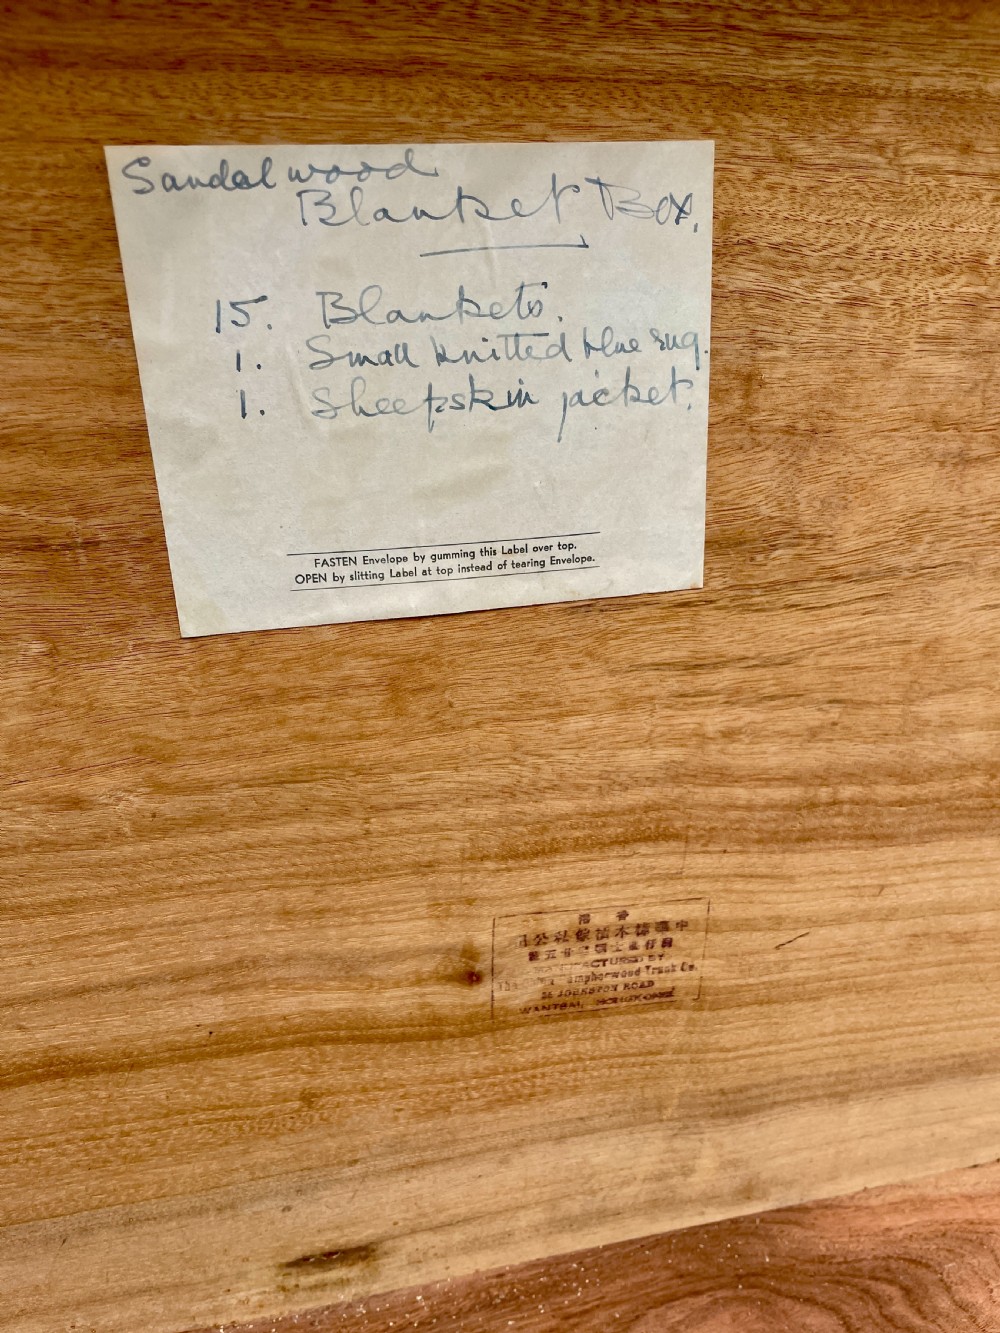 Sandalwood
Blanket Box.
15. Blankets.
1. Small knitted blue rug.
1. Sheepskin jacket.
FASTEN Envelope by gumming this Label over top.
OPEN by slitting Label at top instead of tearing Envelope.
香港
司公私傢箱木樟華中
MANUFACTURED BY
The Camphorwood Trunk Co.
JOHNSTON ROAD
WANTSAI, HONGKONG